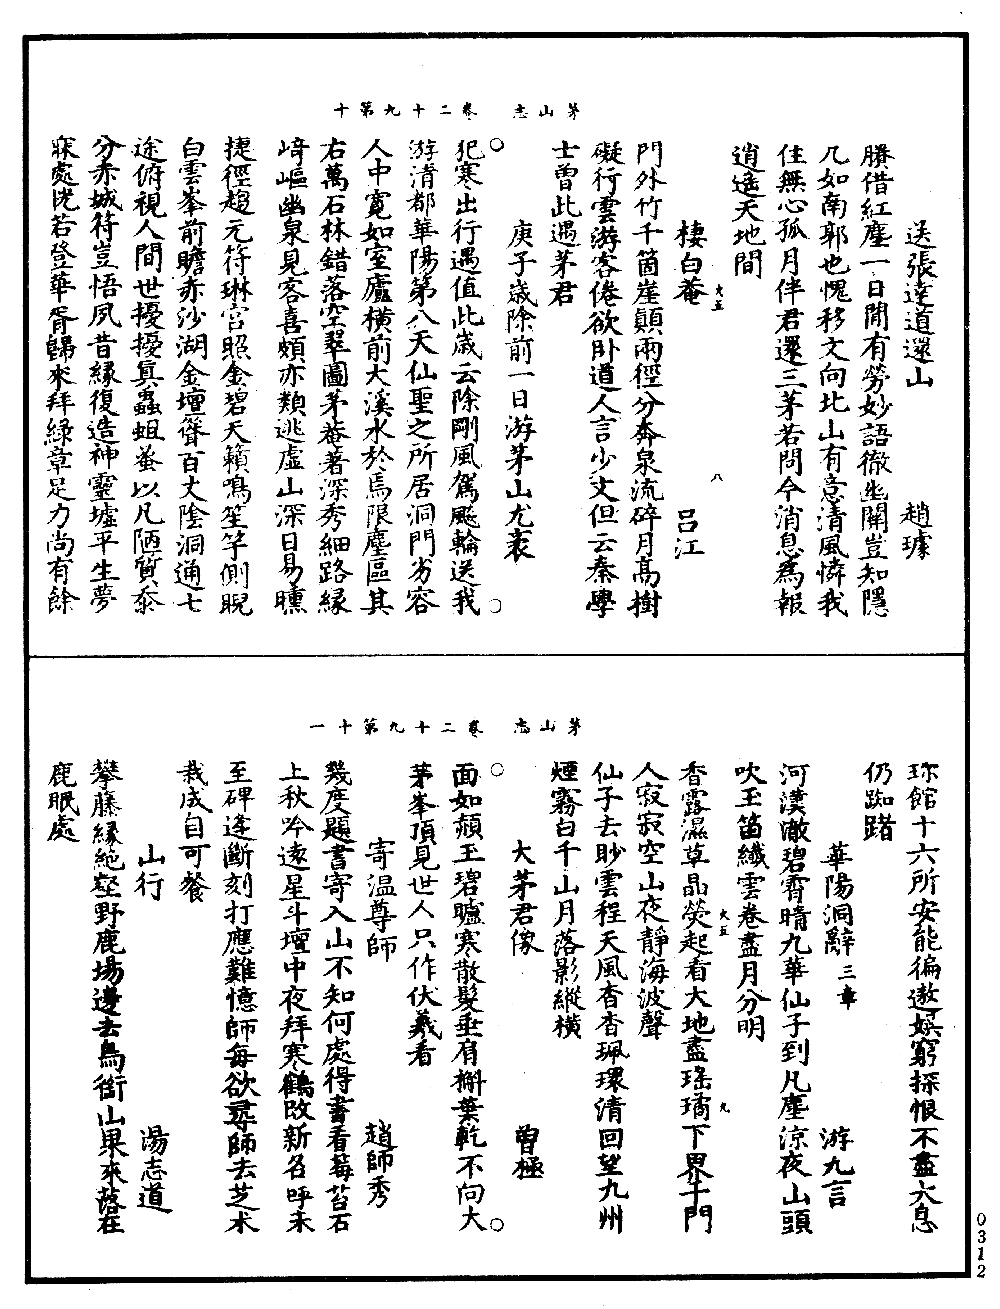 茅山志　卷二十九第十
送張達道還山　趙璩
勝借紅塵一日閒有勞妙語徹幽關豈知隱
几如南郭也愧移文向北山有意清風憐我
住無心孤月伴君還三茅若問今消息爲報
逍遙天地間
棲白菴　呂江
大五　八
門外竹千箇崖顛兩徑分奔泉流碎月高樹
礙行雲游客倦欲卧道人言少文但云秦學
士曾此遇茅君
庚子歲除前一日游茅山尤袤
犯寒出行遇值此歲云除剛風駕飈輪送我
游清都華陽第八天仙聖之所居洞門劣容
人中寬如室廬橫前大溪水於焉限塵區其
右萬石林錯落空翠圖茅菴著深秀細路緣
崎嶇幽泉見客喜頗亦類逃虛山深日易曛
捷徑趨元符琳宮照金碧天籟鳴笙竽側睨
白雲峯前瞻赤沙湖金壇聳百丈陰洞通七
途俯視人間世擾擾真蟲蛆蚤以凡陋質忝
分赤城符豈悟夙昔緣復造神靈墟平生夢
寐處恍若登華胥歸來拜綠章足力尚有餘
茅山志　卷二十九第十一
琳館十六所安能徧遨嬉窮探恨不盡太息
仍踟躇
華陽洞辭三章　游九言
河漢澈碧霄晴九華仙子到凡塵涼夜山頭
吹玉笛纖雲卷盡月分明
大五　九
香露濕草晶熒起看大地盡瑤璚下界千門
人寂寂空山夜靜海波聲
仙子去眇雲程天風杳杳珮環清回望九州
煙霧白千山月落影縱橫
大茅君像　曾極
面如頳玉碧矑寒散髮垂肩槲葉乾不向大
茅峯頂見世人只作伏羲看
寄溫尊師　趙師秀
幾度題書寄入山不知何處得書看莓苔石
上秋吟遠星斗壇中夜拜寒鶴改新名呼未
至碑逢斷刻打應難憶師每欲尋師去芝术
栽成自可餐
山行　湯志道
攀藤緣絕壑野鹿場邊去鳥銜山果來落在
鹿眠處
0312